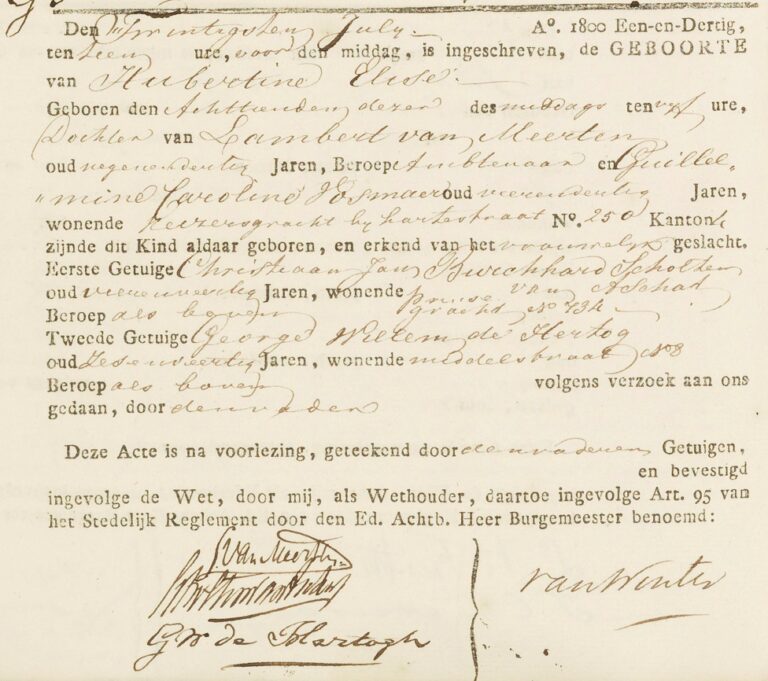 Den Twintigsten July. Aº. 1800 Een-en-Dertig,
ten tien ure, voor den middag, is ingeschreven, de GEBOORTE
van Hubertine Elise.
Geboren den Achttienden dezer des middags ten vyf ure,
Dochter van Lambert van Meerten
oud negenendertig Jaren, Beroep Ambtenaar en Guille=
"mine Caroline Vosmaer oud vierendertig Jaren,
wonende Keizersgracht by hartestraat Nº. 250 Kanton 4
zijnde dit Kind aldaar geboren, en erkend van het vrouwelyk geslacht.
Eerste Getuige Christiaan Jan Burchhard Scholten
oud vierenveertig Jaren, wonende prinse gracht No 734
Beroep als boven
Tweede Getuige George Willem de Hertog
oud Zesenveertig Jaren, wonende middelstraat No 8
Beroep als boven volgens verzoek aan ons
gedaan, door den vader
Deze Acte is na voorlezing, geteekend door den vader en Getuigen,
en bevestigd
ingevolge de Wet, door mij, als Wethouder, daartoe ingevolge Art. 95 van
het Stedelijk Reglement door den Ed. Achtb. Heer Burgemeester benoemd:
L Van Meerten
van Winter
GW de Hartogh